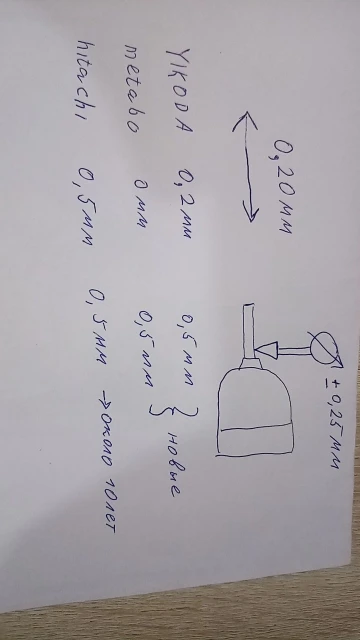 0,20мм
± 0,25мм
YIKODA 0,2мм 0,5мм
metabo 0мм 0,5мм } новые
hitachi 0,5мм 0,5мм → около 10лет